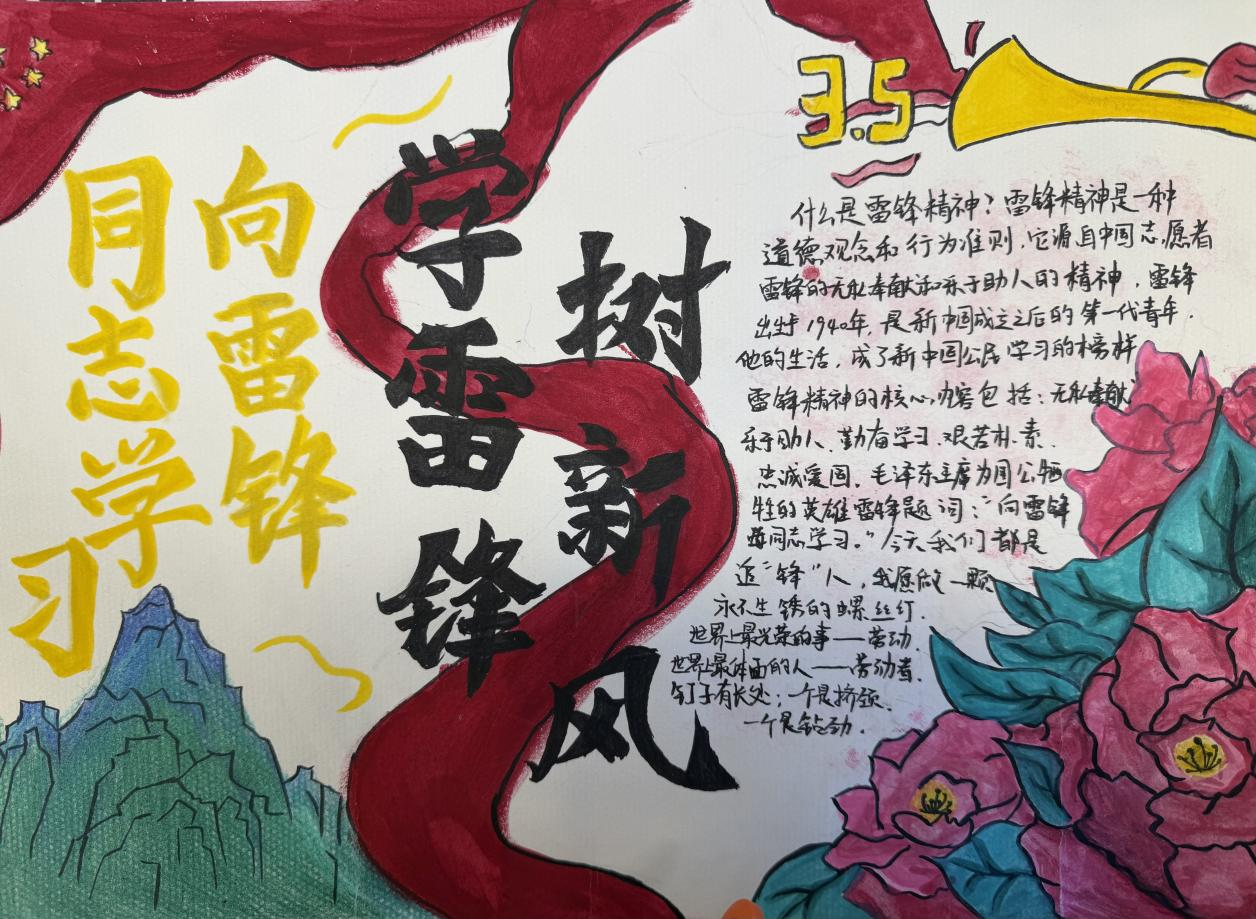 向雷锋
同志学
习
学雷锋
树新风
3.5
什么是雷锋精神?雷锋精神是一种
道德观念和行为准则,它源自中国志愿者
雷锋的无私奉献和乐于助人的精神,雷锋
出生于1940年,是新中国成立之后的第一代青年.
他的生活,成了新中国公民学习的榜样
雷锋精神的核心,内容包括:无私奉献
乐于助人、勤奋学习、艰苦朴素、
忠诚爱国。毛泽东主席为因公牺
牲的英雄雷锋题词:“向雷锋
同志学习。”今天我们都是
追“锋”人,我愿做一颗
永不生锈的螺丝钉.
世界上最光荣的事——劳动.
世界上最体面的人——劳动者.
钉子有长处:一个是挤领.
一个是钻动.